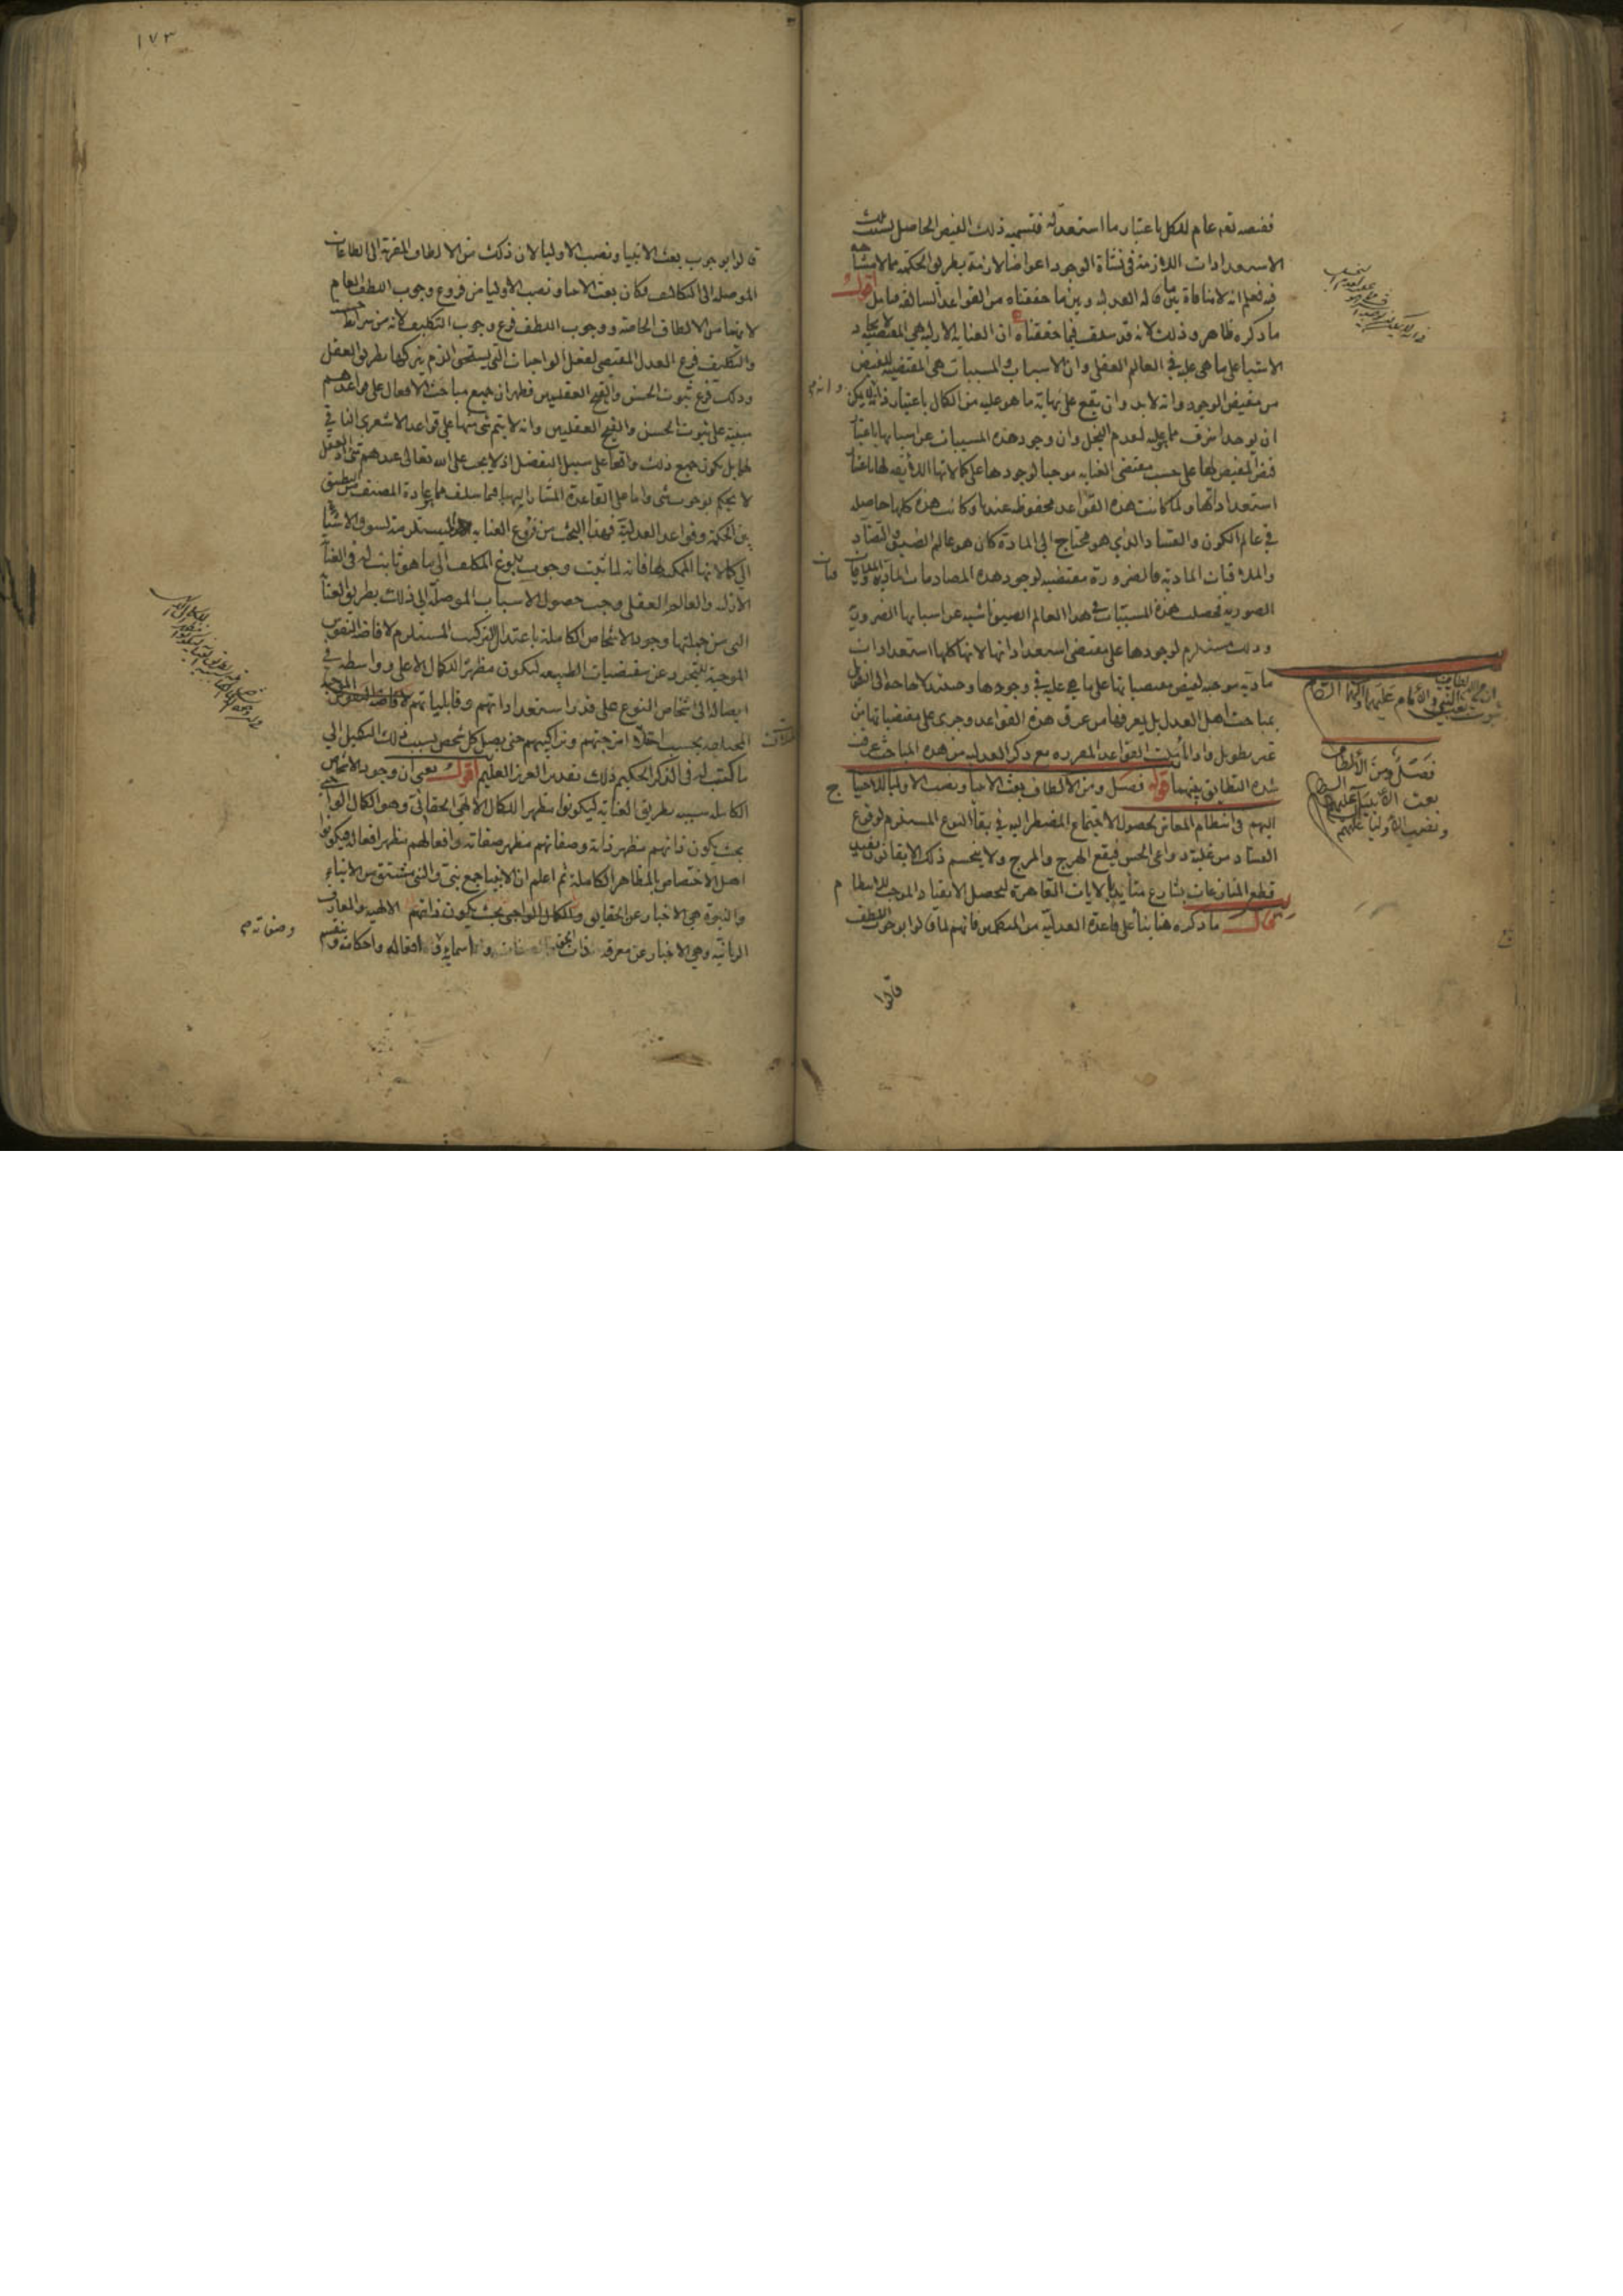 ففيضه تعم عام للكل باعتبار ما استعد له فتسميه ذلك الفيض الحاصل بسبب تلك
الاستعدادات اللازمة فى نشاة الوجود اعواضا لازمة بطريق الحكمة مما لا مشاحه
فيه فعلم انه لا منافاة بين ما قاله العدليه وبين ما حققناه من القواعد السالفه فتامل اقول
ما ذكره ظاهر وذلك لانه قد سلف فيما حققناه ان العنايه الازليه هى المقتضيه لايجاد
الاشيا على ما هى عليه فى العالم العقلى وان الاسباب والمسببات هى المقتضيه للفيض
من مفيض الوجود وانه لا بد وان يقع على نهاية ما هو عليه من الكمال باعتبار ذاته يمكن
وانه لم
ان يوجد اشرف مما عليه لعدم البخل وان وجود هذه المسببات عن اسبابها باعتبار
فيض المفيض لها على حسب مقتضى العنايه موجبا لوجودها على كمالاتها اللائقه لها باعتبار
استعداداتها ولما كانت هذه القواعد محفوظه عندنا وكانت هذه كلها حاصله
فى عالم الكون والفساد الذي هو محتاج الى المادة كان هو عالم الضيق والتضاد
والملاقات الماديه فالضرورة مقتضيه لوجود هذه المصادمات الماديه
الصوريه فحصلت هذه المسببات فى هذا العالم الضيق ناشيه عن اسبابها الضرورية
وذلك مستلزم لوجودها على مقتضى استعداداتها لانها كلها استعدادات
ماديه موجبه لفيض مقتضياتها على ما هى عليه فى وجودها وحينئذ لا حاجة الى التطويل
بمباحث اهل العدل بل يعرفها من عرف هذه القواعد وجرى على مقتضياتها من
غير تطويل واذا تاملت القواعد المقرره مع ذكر العدليه من هذه المباحث عرفت
شدة التطابق بينهما قوله فصل ومن الالطاف بعث الانبيا ونصب الاوليا للاحتياج
اليهم فى انتظام المعاش بحصول الاجتماع المضطر اليه فى بقا النوع المستلزم لوقوع
الفساد من غلبة دواعى الحس فيقع الهرج والمرج ولا ينحسم ذلك الا بقانون يفيد
قطع المنازعات بشارع متأيد بالايات القاهرة ليحصل الانقياد الموجب للانتظام
قال ما ذكره هنا بنأ على قاعدة العدليه من المتكلمين فانهم لما قالوا بوجوب اللطف
قالوا
فصل ومن الألطاف
بعث الأنبياء عليهم السلام
ونصب الأولياء عليهم
١٧٣
قالوا بوجوب بعث الانبيا ونصب الاوليا لان ذلك من الالطاف المقربة الى الطاعات
الموصله الى التكاليف فكان بعث الانبيا ونصب الاوليا من فروع وجوب اللطف العام
لانهما من الالطاف الخاصة ووجوب اللطف فرع وجوب التكليف لانه من شرايط حسنه
والتكليف فرع العدل المقتضى لفعل الواجبات التى يستحق الذم بتركها بطريق العقل
وذلك فرع ثبوت الحسن والقبح العقليين فظهر ان جميع مباحث الافعال على قواعدهم
مبنية على ثبوت الحسن والقبح العقليين وانه لا يتم شى منها على قواعد الاشعرى النافى
لهما بل يكون جميع ذلك واقعا على سبيل التفضل اذ لا يجب على الله تعالى عندهم شى اذ العقل
لا يحكم بوجوب شى واما على القاعدة المشار اليها فيما سلف مما عادة المصنف من التطبيق
بين الحكمة وقواعد العدلية فهذا البحث من فروع العنايه المستلزمة لسوق الاشيا
الى كمالاتها الممكنه لها فانه لما ثبت وجوب بلوغ المكلف الى ما هو ثابت له فى العناية
الازليه والعالم العقلى وجب حصول الاسباب الموصلة الى ذلك بطريق العناية
التى من جملتها وجود الاشخاص الكاملة باعتدال التركيب المستلزم لافاضة النفوس
الموجبة للتجرد عن مقتضيات الطبيعه ليكون مظهرا للكمال الاعلى وواسطه فى
ايصاله الى اشخاص النوع على قدر استعداداتهم وقابلياتهم
المختلفه بحسب اختلاف امزجتهم وتراكيبهم حتى يصل كل شخص بسبب ذلك التكميل الى
ما كتب له فى الذكر الحكيم ذلك تقدير العزيز العليم اقول يعنى ان وجود الاشخاص
الكامله سببه بطريق العنايه ليكونوا مظهرا للكمال الالهى الحقانى وهو الكمال الواجبى
بحيث يكون ذاتهم مظهر ذاته وصفاتهم مظهر صفاته وافعالهم مظهر افعاله فيكونوا
اهل الاختصاص بالمظاهر الكاملة ثم اعلم ان الانبيا جمع نبى والنبى مشتق من الانباء
والنبوة هى الاخبار عن الحقايق والكمال الواجبى بحيث يكون ذاتهم الالهيه والمعارف
الربانيه وهى الاخبار عن معرفة ذات الحق واسمائه وافعاله واحكامه وتنقسم
وصفاته